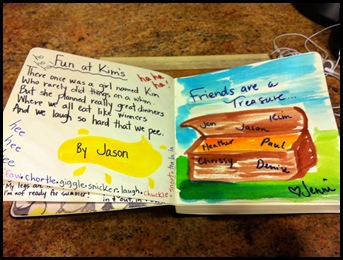 Fun at Kim's
There once was a girl named Kim
Who rarely did things on a whim
But she planned really great dinners
Where we all eat like winners
And we laugh so hard that we pee.
ha ha
ha!
hee
hee
hee
By Jason
chortle·giggle·snicker·laugh·chuckle
My legs are
I'm not ready for summer!
Friends are a
Treasure...
Jen Jason Kim
Heather Paul
Chrissy Denise
Jenni